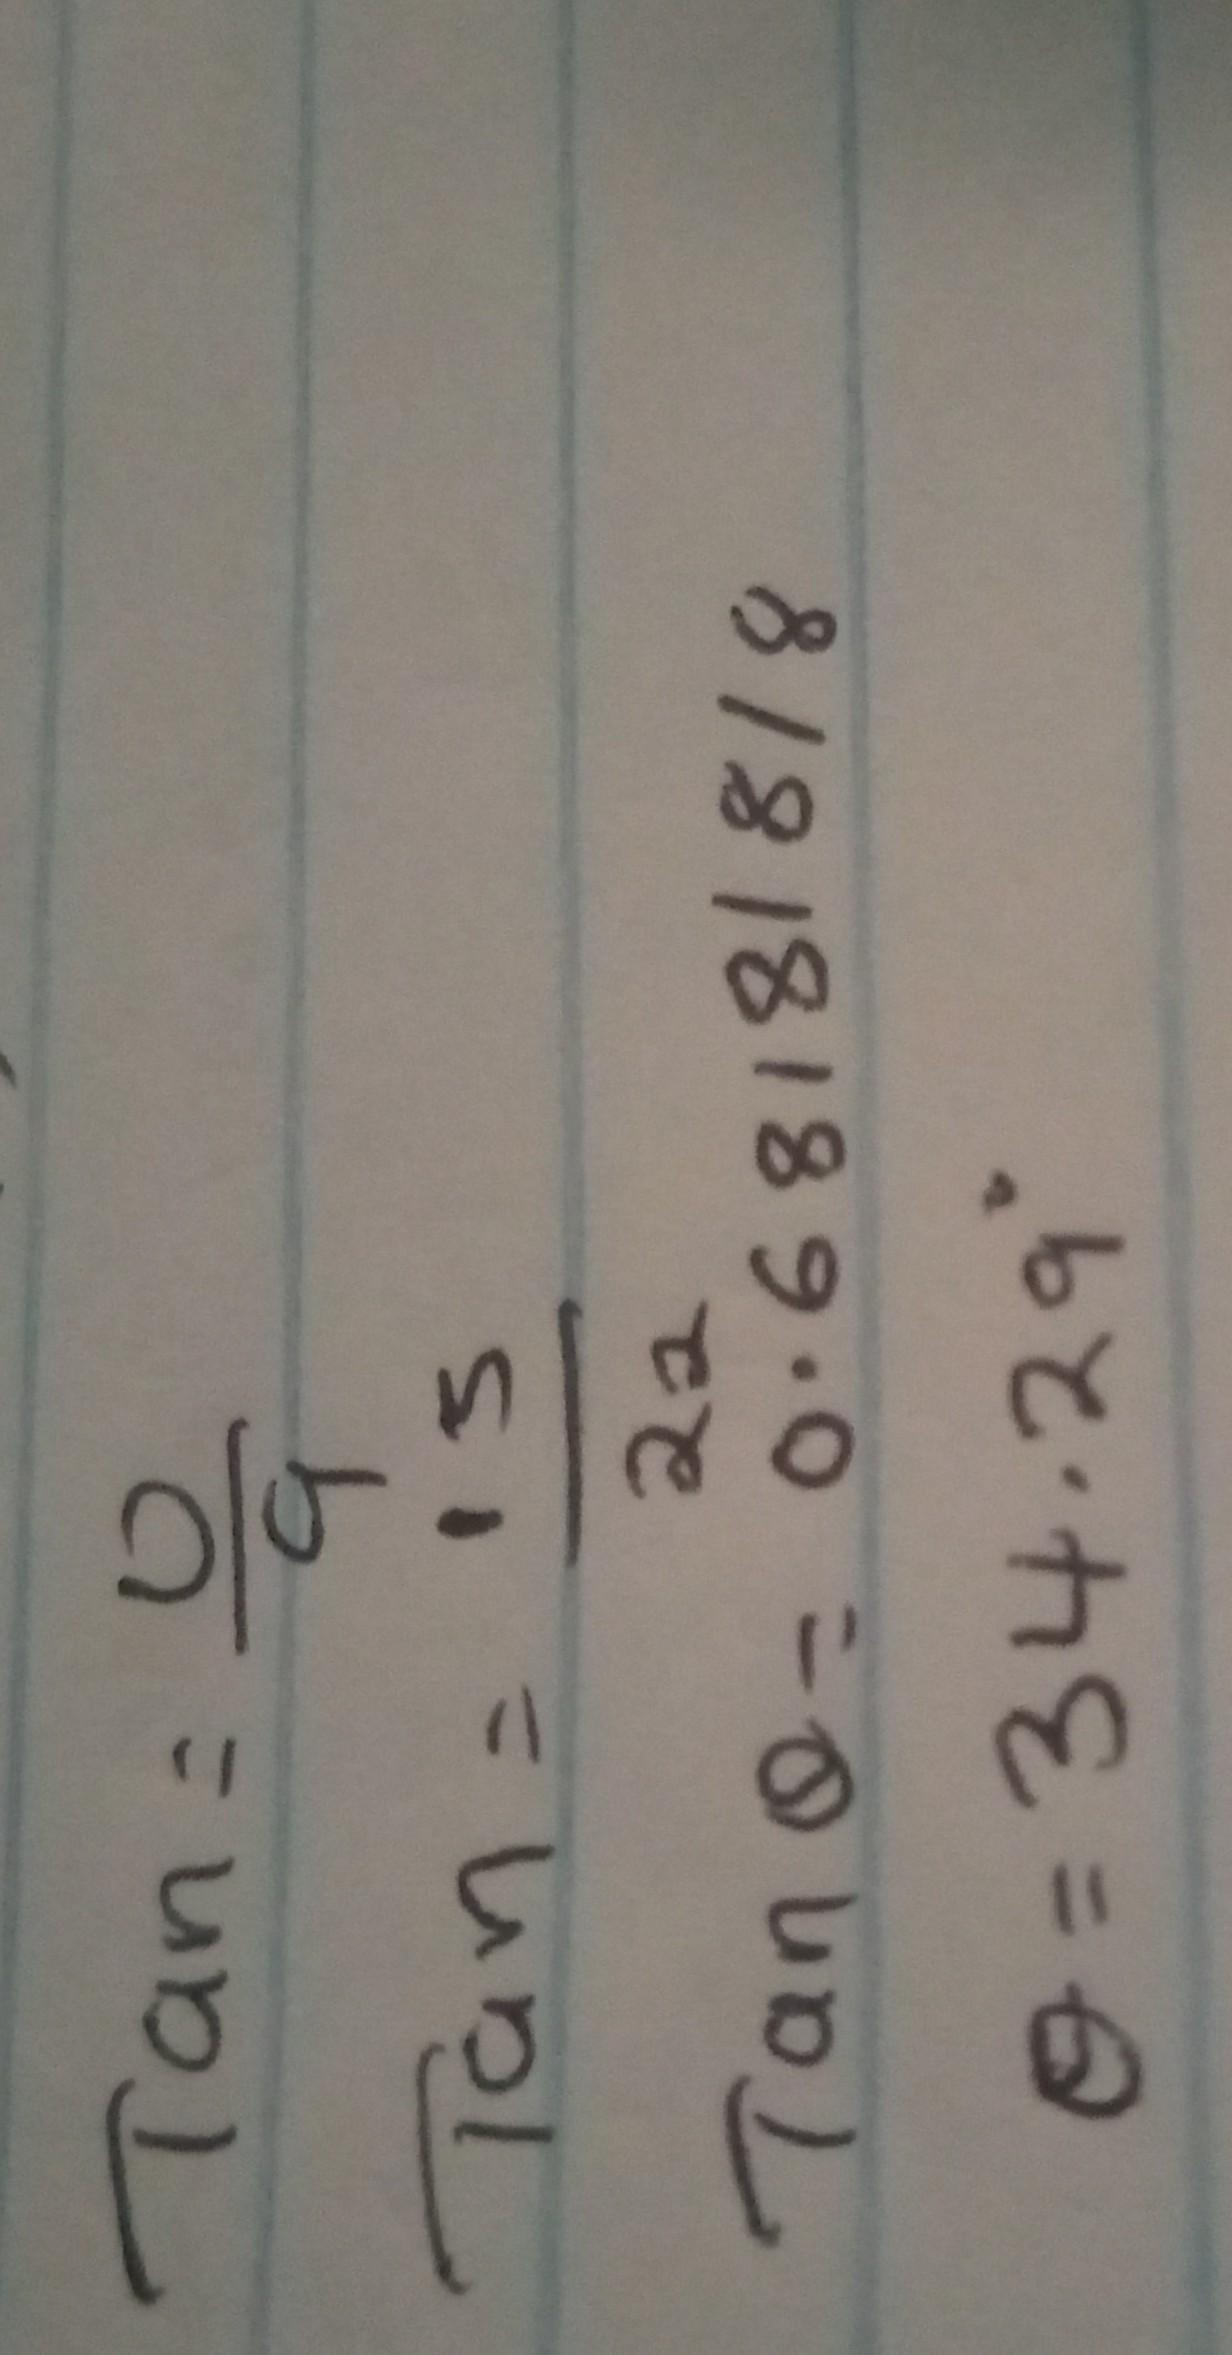 Tan = O/a
Tan = 15/22
Tan θ = 0.68181818
θ = 34.29°